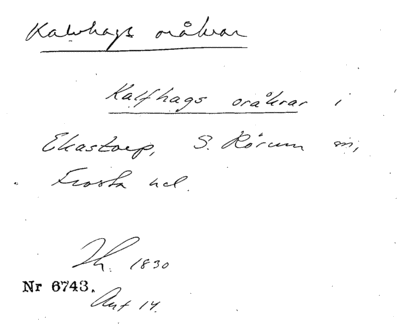 Kalvhags oråkrar
Kalfhags oråkrar i
Ekastorp, S. Rörum sn,
Frosta hd.
Th. 1830
Nr 6743.
Akt 14.